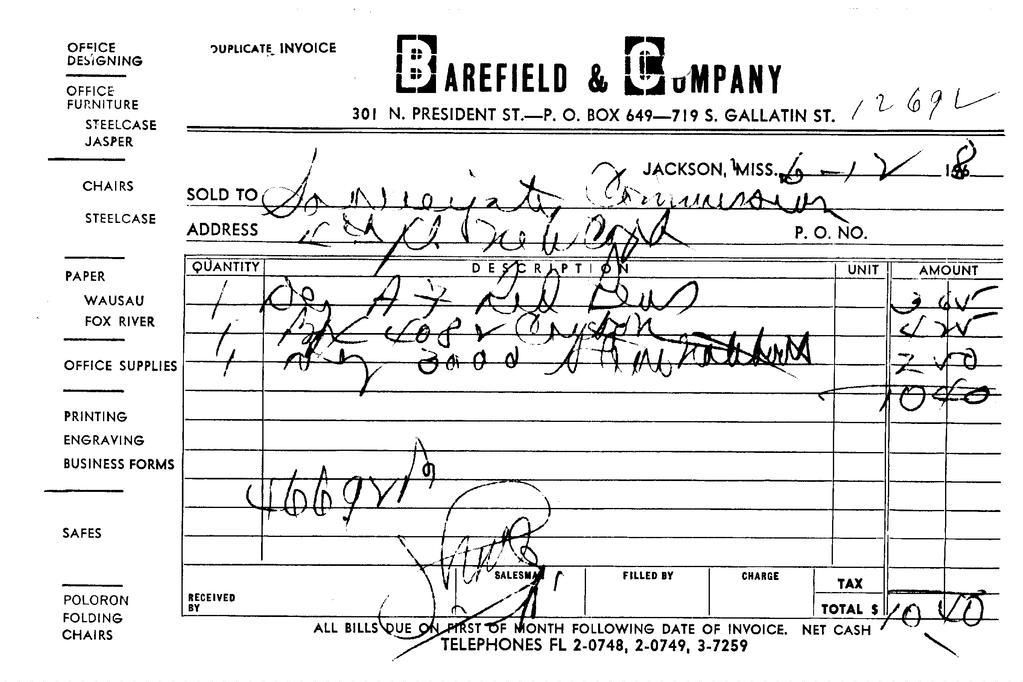 OFFICE DESIGNING
OFFICE FURNITURE
STEELCASE
JASPER
CHAIRS
STEELCASE
PAPER
WAUSAU
FOX RIVER
OFFICE SUPPLIES
PRINTING
ENGRAVING
BUSINESS FORMS
SAFES
POLORON
FOLDING
CHAIRS
DUPLICATE INVOICE
BAREFIELD & COMPANY
301 N. PRESIDENT ST.—P. O. BOX 649—719 S. GALLATIN ST.
JACKSON, MISS. 6-12
SOLD TO So Commission
ADDRESS P. O. NO.
QUANTITY DESCRIPTION UNIT AMOUNT
1 A Z Red 3 65
1 4082 4 25
1 3000 2 50
10 40
SALESMAN FILLED BY CHARGE TAX
RECEIVED BY
TOTAL $ 10 40
ALL BILLS DUE ON FIRST OF MONTH FOLLOWING DATE OF INVOICE. NET CASH
TELEPHONES FL 2-0748, 2-0749, 3-7259